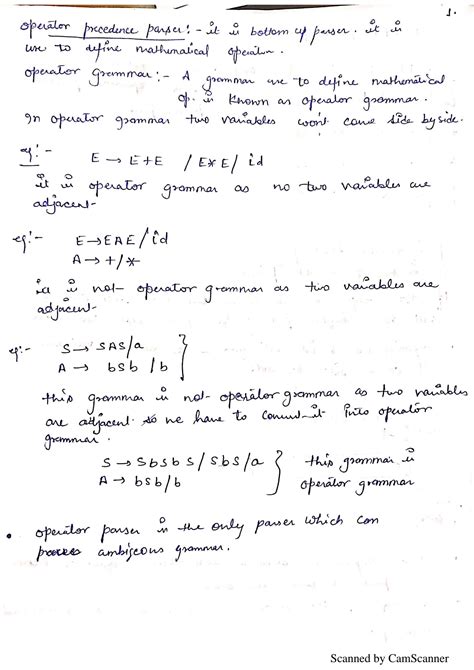 1.
operator precedence parser:- it is bottom up parser. it is
use to define mathematical operator.
operator grammar:- A grammar use to define mathematical
op. is known as operator grammar.
In operator grammar two variables won't come side by side.
eg:- E → E+E / E*E / id
it is operator grammar as no two variables are
adjacent-
eg:- E→EAE/id
A→+/*
is not- operator grammar as two variables are
adjacent-
eg:- S→ SAS/a
A→ bSb/b
this grammar is not- operator grammar as two variables
are adjacent so we have to convert-it into operator
grammar.
S→SbSbS/SbS/a } this grammar is
A→ bSb/b operator grammar
• operator parser is the only parser which can
process ambigeous grammar.
Scanned by CamScanner